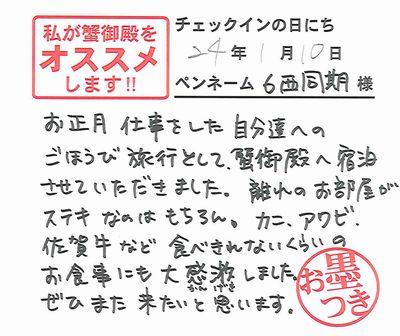 私が蟹御殿を
オススメ
します!!
チェックインの日にち
24年1月10日
ペンネーム 6西同期 様
お正月 仕事をした 自分達への
ごほうび 旅行として、蟹御殿へ宿泊
させていただきました。離れのお部屋が
ステキ なのは もちろん。カニ、アワビ、
佐賀牛など 食べきれないくらいの
お食事にも 大感激しました。
ぜひ また 来たいと 思います。
お墨つき